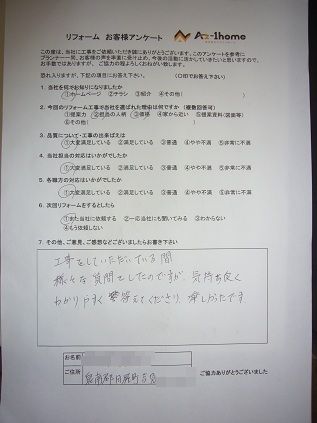 リフォーム お客様アンケート
Az-1home
この度は、当社に工事をご依頼いただき誠にありがとうございます。このアンケートを参考に
プランナー一同、お客様の声を真摯に受け止め、今後の活動に活かしていきたいと思いますので、
お手数ではありますが、ご協力の程よろしくおねがい致します。
恐れ入りますが、下記の項目にお答え下さい。 (〇印でお答え下さい)
1. 当社を何でお知りになりましたか
①ホームページ ②チラシ ③紹介 ④その他( )
2. 今回のリフォーム工事で当社を選ばれた理由は何ですか (複数回答可)
①提案力 ②担当の人柄 ③価格 ④家から近い ⑤提案資料(図面等)
⑥その他( )
3. 品質について・工事の出来ばえは
①大変満足している ②満足している ③普通 ④やや不満 ⑤非常に不満
4. 当社担当の対応はいかがでしたか
①大変満足している ②満足している ③普通 ④やや不満 ⑤非常に不満
5. 各職方の対応はいかがでしたか
①大変満足している ②満足している ③普通 ④やや不満 ⑤非常に不満
6. 次回リフォームをするとしたら
①また当社に依頼する ②一応当社にも聞いてみる ③わからない
④もう依頼しない
7. その他、ご意見、ご感想などございましたらお書き下さい
工事をしていただいている間
様々な質問をしたのですが、気持ち良く
わかりやすく答えてくださり、嬉しかったです
お名前
ご住所
泉南郡
ご協力ありがとうございました